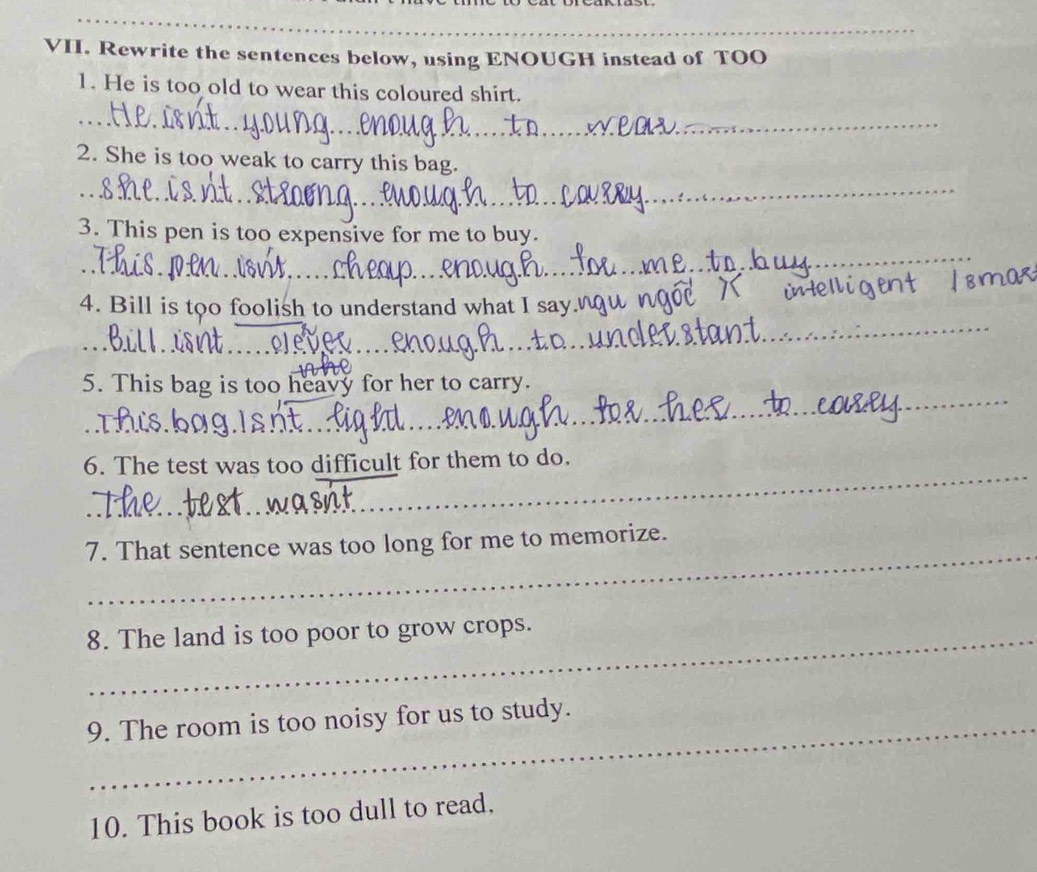 VII. Rewrite the sentences below, using ENOUGH instead of TOO
1. He is too old to wear this coloured shirt.
He isn't young enough to wear
2. She is too weak to carry this bag.
she is n't stroong enough to carry
3. This pen is too expensive for me to buy.
This pen isn't cheap enough for me to buy
4. Bill is too foolish to understand what I say. ngu ngốc X intelligent / smar
Bill isnt clever enough to understant
5. This bag is too heavy for her to carry.
This bag isn't light enough for her to carry
6. The test was too difficult for them to do.
The test wasn't
7. That sentence was too long for me to memorize.
8. The land is too poor to grow crops.
9. The room is too noisy for us to study.
10. This book is too dull to read.